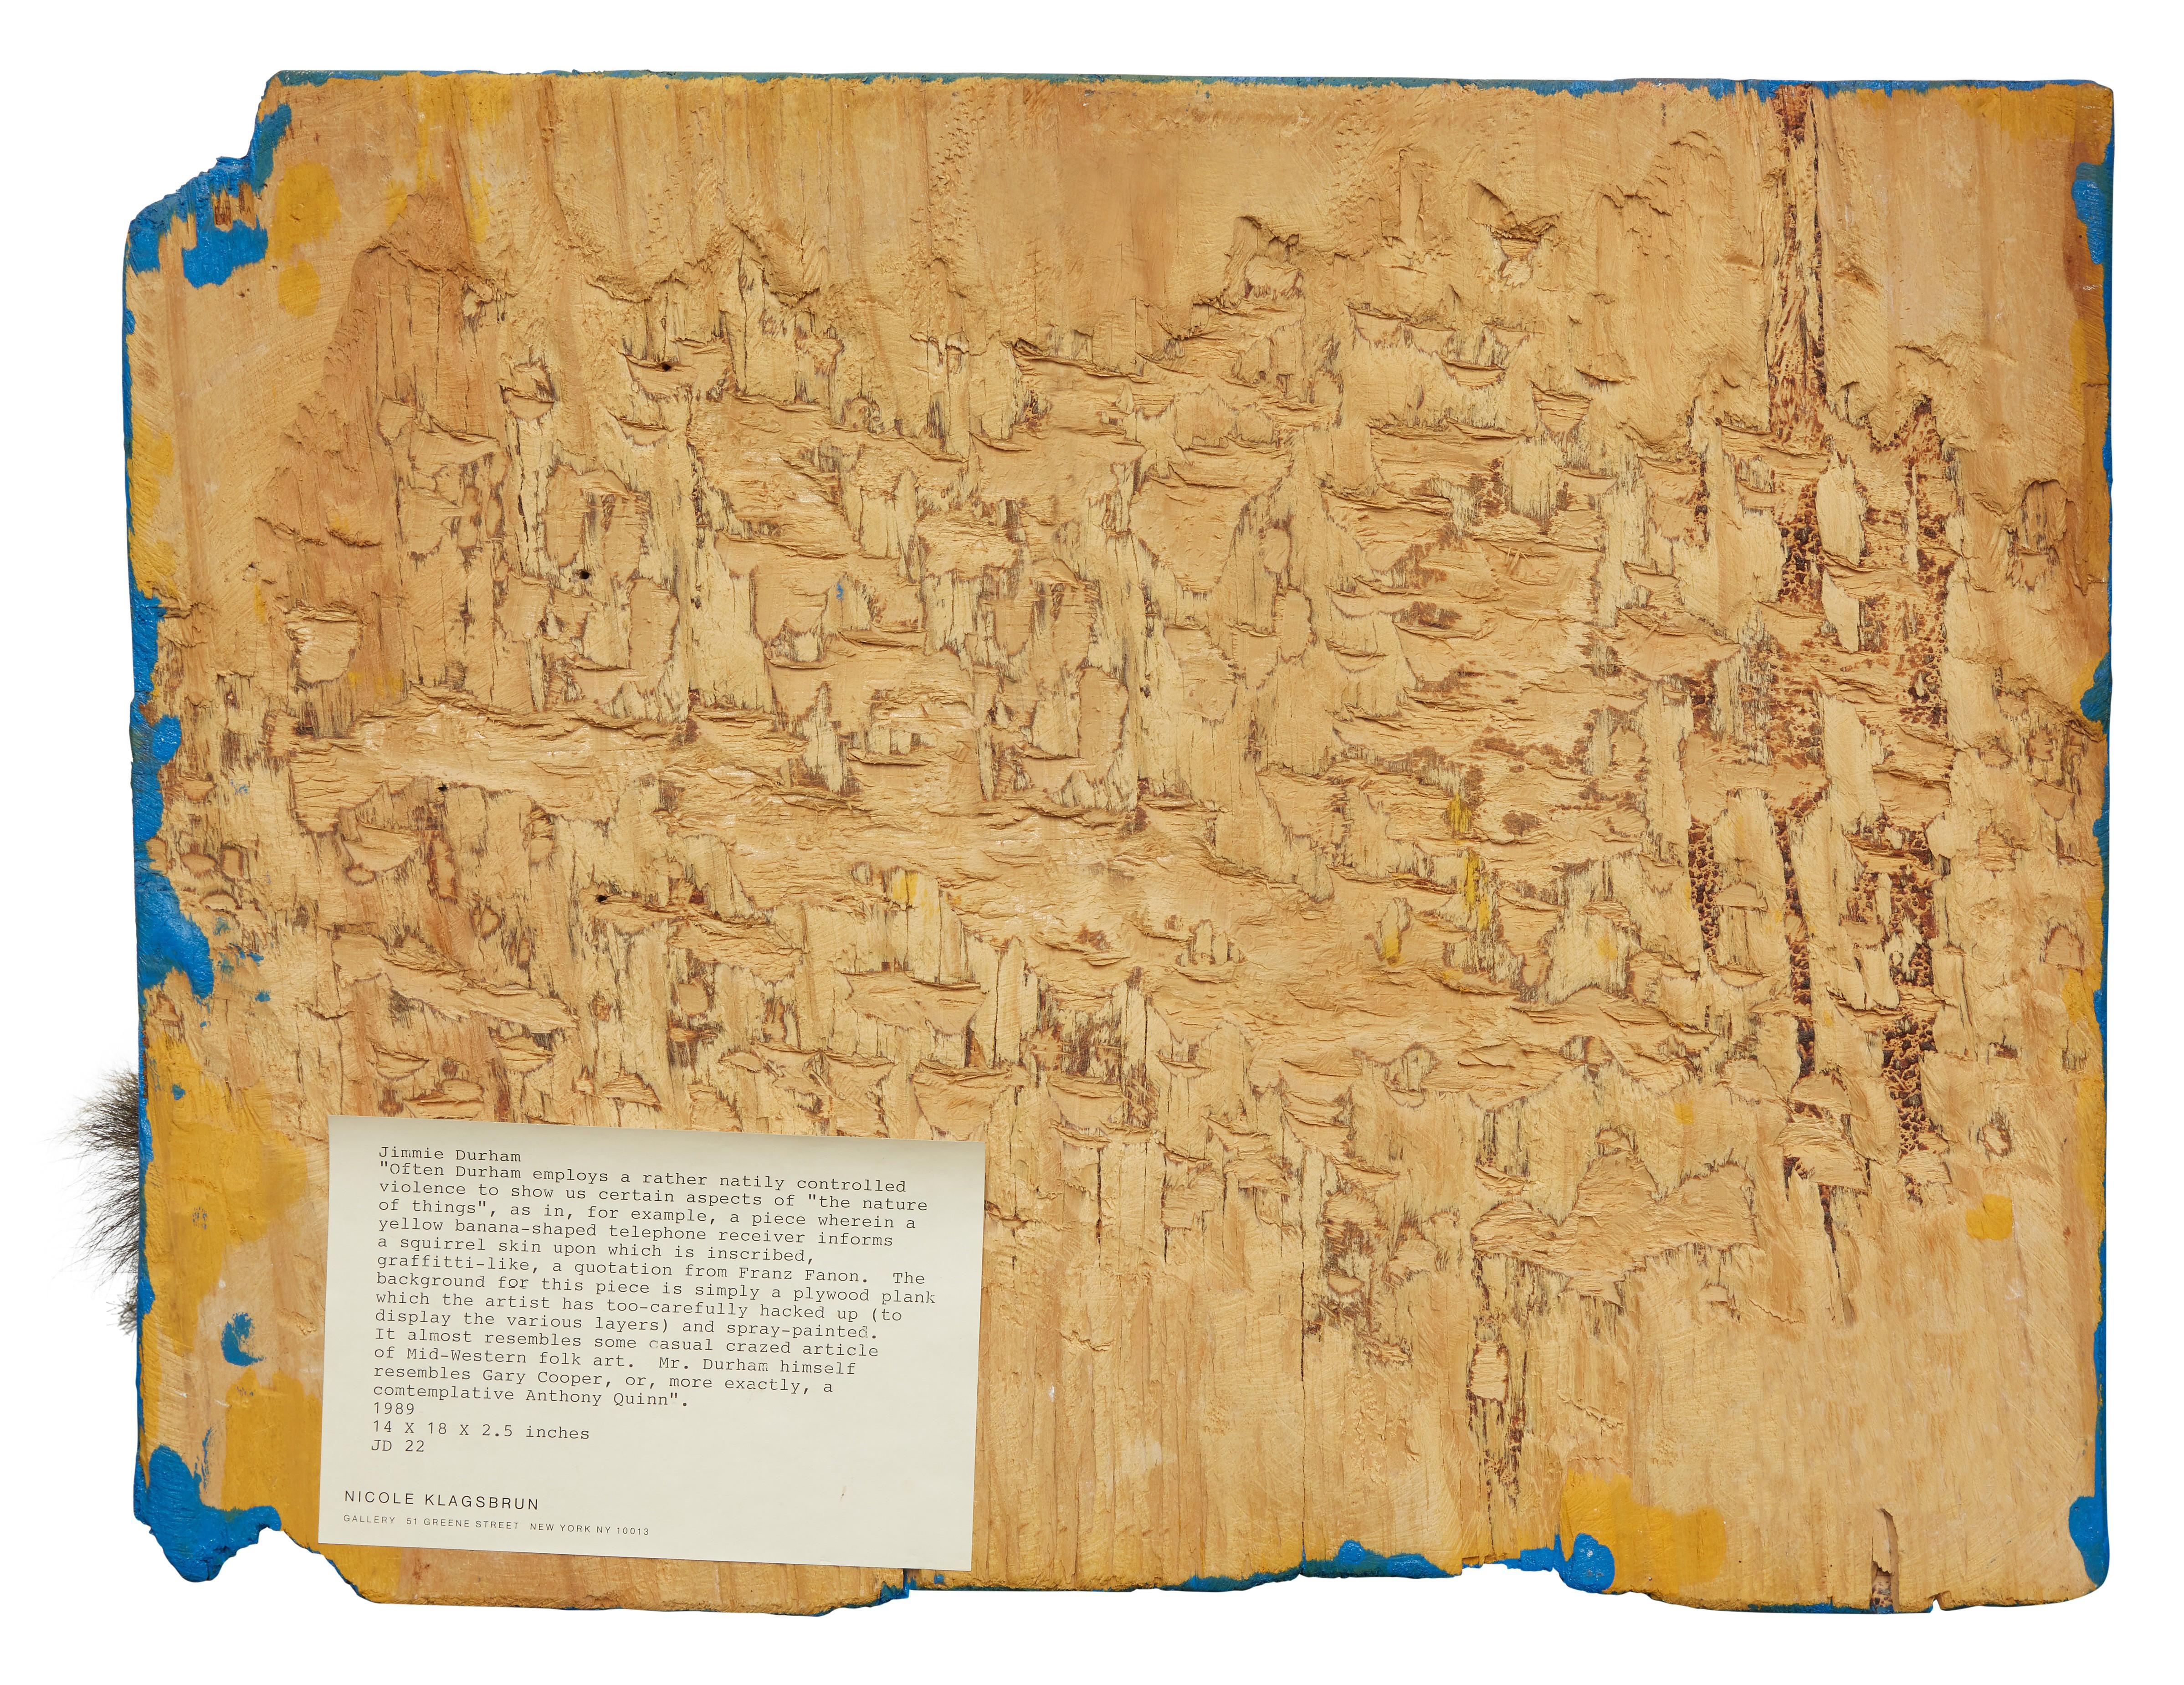 Jimmie Durham
"Often Durham employs a rather natily controlled
violence to show us certain aspects of "the nature
of things", as in, for example, a piece wherein a
yellow banana-shaped telephone receiver informs
a squirrel skin upon which is inscribed,
graffitti-like, a quotation from Franz Fanon.  The
background for this piece is simply a plywood plank
which the artist has too-carefully hacked up (to
display the various layers) and spray-painted.
It almost resembles some casual crazed article
of Mid-Western folk art.  Mr. Durham himself
resembles Gary Cooper, or, more exactly, a
comtemplative Anthony Quinn".
1989
14 X 18 X 2.5 inches
JD 22
NICOLE KLAGSBRUN
GALLERY 51 GREENE STREET NEW YORK NY 10013